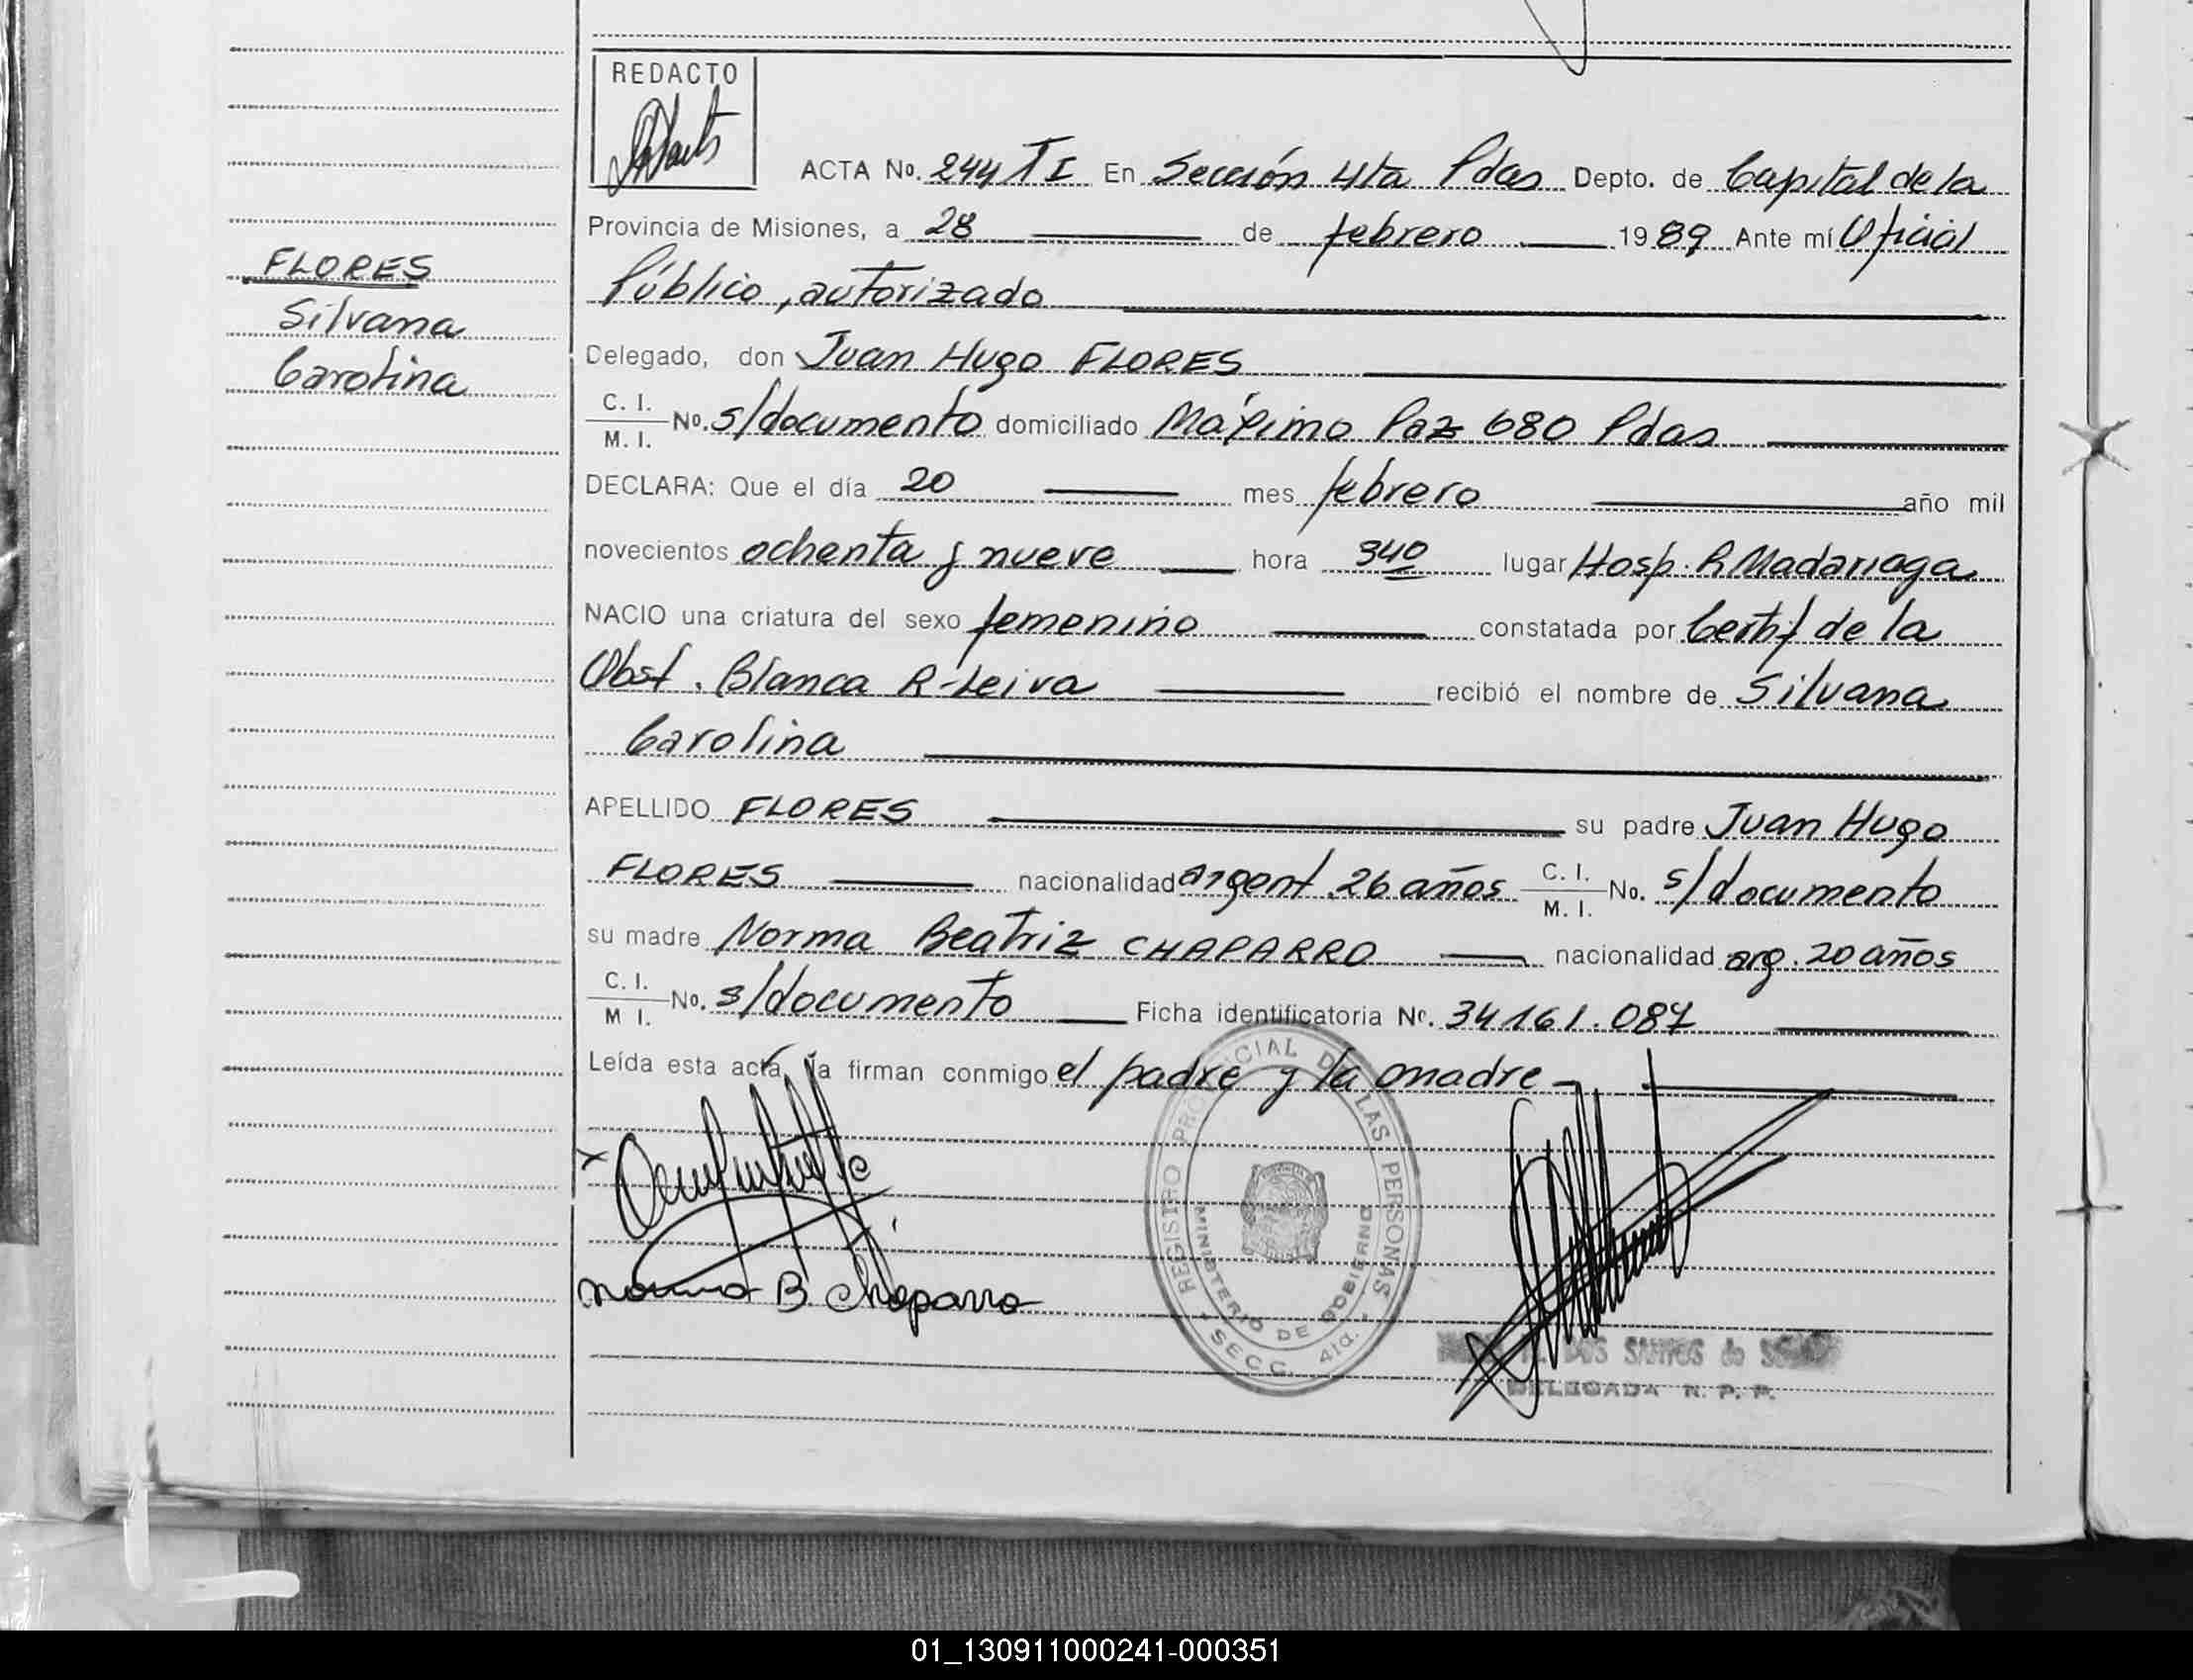 REDACTO
ACTA No. 244 T I En Sección 4ta Pdas Depto. de Capital de la
Provincia de Misiones, a 28 de febrero 1989 Ante mí Oficial
Público, autorizado
FLORES
Silvana
Carolina
Delegado, don Juan Hugo FLORES
C. I.
M. I. No. s/documento domiciliado Máximo Paz 680 Pdas
DECLARA: Que el día 20 mes febrero año mil
novecientos ochenta y nueve hora 340 lugar Hosp. R Madariaga
NACIO una criatura del sexo femenino constatada por Certif de la
Obst. Blanca R. Leiva recibió el nombre de Silvana
Carolina
APELLIDO FLORES su padre Juan Hugo
FLORES nacionalidad argent. 26 años C. I. M. I. No. s/documento
su madre Norma Beatriz CHAPARRO nacionalidad arg. 20 años
C. I.
M I. No. s/documento Ficha identificatoria No. 34161.087
Leída esta acta, la firman conmigo el padre y la madre
Norma B. Chaparro
REGISTRO PROVINCIAL DE LAS PERSONAS
MINISTERIO DE GOBIERNO
SECC. 4ta.
DOS SANTOS de
DELEGADA R. P. P.
01_130911000241-000351